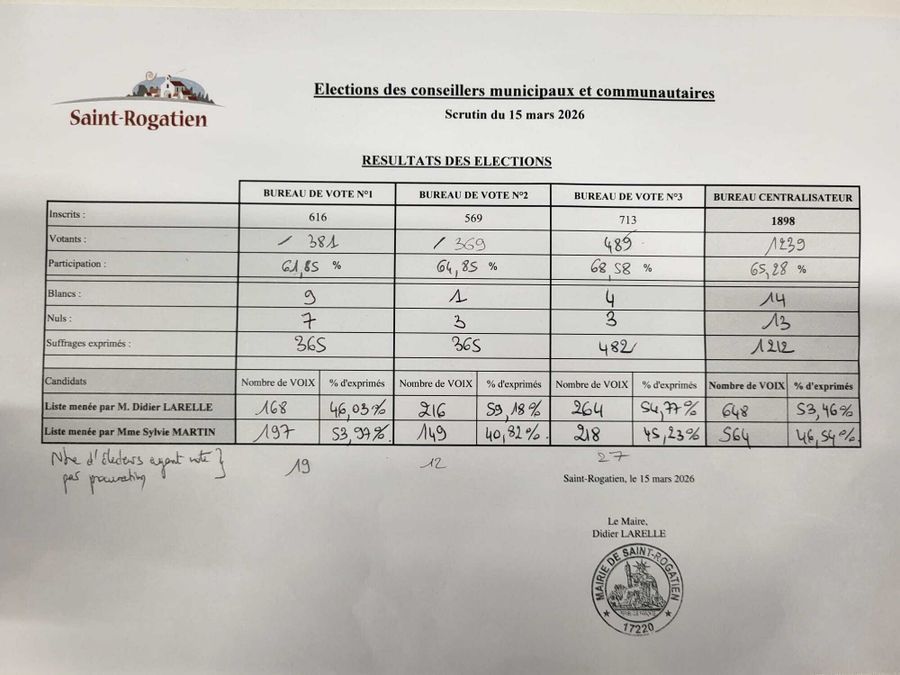 Saint-Rogatien
Elections des conseillers municipaux et communautaires
Scrutin du 15 mars 2026
RESULTATS DES ELECTIONS
BUREAU DE VOTE N°1 BUREAU DE VOTE N°2 BUREAU DE VOTE N°3 BUREAU CENTRALISATEUR
Inscrits : 616 569 713 1898
Votants : 381 369 489 1239
Participation : 61,85 % 64,85 % 68,58 % 65,28 %
Blancs : 9 1 4 14
Nuls : 7 3 3 13
Suffrages exprimés : 365 365 482 1212
Candidats Nombre de VOIX % d'exprimés Nombre de VOIX % d'exprimés Nombre de VOIX % d'exprimés Nombre de VOIX % d'exprimés
Liste menée par M. Didier LARELLE 168 46,03% 216 59,18% 264 54,77% 648 53,46%
Liste menée par Mme Sylvie MARTIN 197 53,97% 149 40,82% 218 45,23% 564 46,54%
Nbre d'électeurs ayant voté } 19 12 27
par procuration
Saint-Rogatien, le 15 mars 2026
Le Maire,
Didier LARELLE
MAIRIE DE SAINT-ROGATIEN
17220